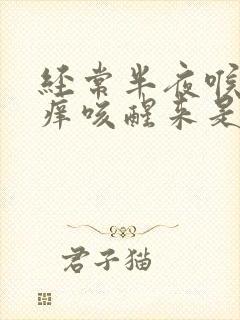 经常半夜喉
痒咳醒来是
君子猫